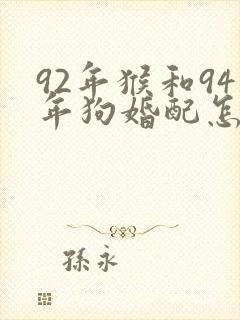 92年猴和94
年狗婚配怎
孫永